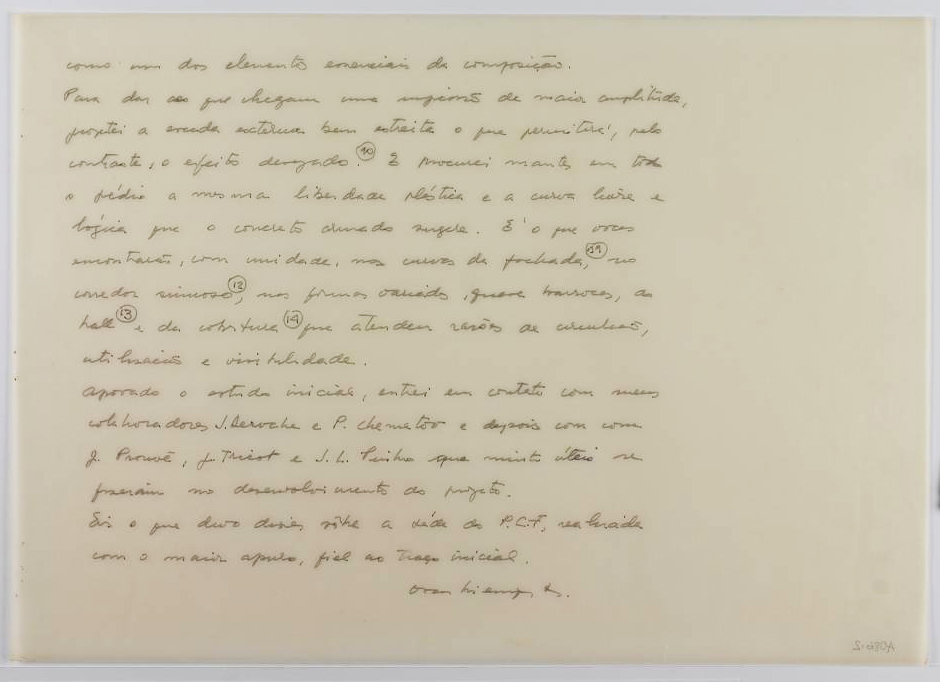 como um dos elementos essenciais da composição.
Para dar aos que chegam uma impressão de maior amplitude,
projetei a entrada externa bem estreita o que permitirá, pelo
contraste, o efeito desejado. (10) E procurei manter em todo
o prédio a mesma liberdade plástica e a curva livre e
lógica que o concreto armado sugere. É o que voces
encontrarão, com unidade, nas curvas da fachada, (11) no
corredor sinuoso (12), nas formas variadas, quase barrocas, do
hall (13) e da cobertura (14) que atendem razões de circulação,
utilização e visibilidade.
Aprovado o estudo inicial, entrei em contato com meus
colaboradores J. Deroche e P. Chemetov e depois com com
J. Prouvé, J. Tricot e J. L. Pinho que muito úteis se
fizeram no desenvolvimento do projeto.
Eis o que devo dizer sobre a séde do P.C.F, realizada
com o maior apuro, fiel ao traço inicial.
Oscar Niemeyer